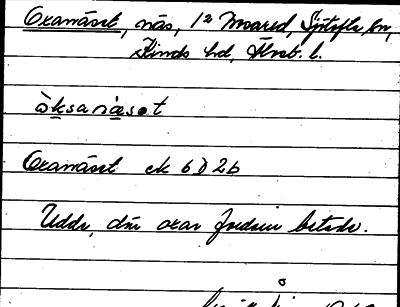 Oxanäset, näs, 1² Moared, Sjötofta sn,
Kinds hd, Älvsb. l.
òksanä̀sət
Oxanäset ek 6D2b
Udde, där oxar fordom betade.